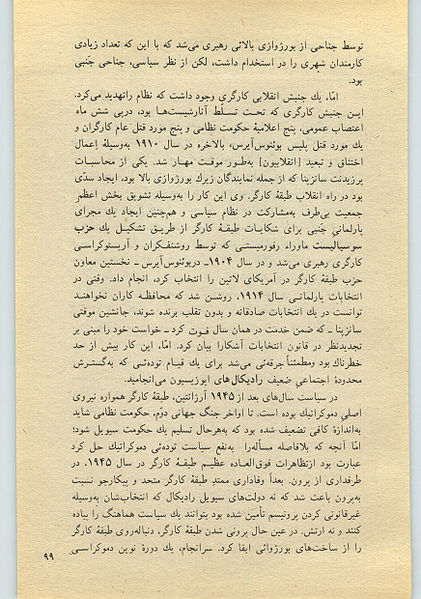 توسط جناحی از بورژوازی بالائی رهبری می‌شد که با این که تعداد زیادی
کارمندان شهری را در استخدام داشت، لکن از نظر سیاسی، جناحی جَنبی
بود.
امّا، یك جنبش انقلابی کارگری وجود داشت که نظام راتهدید می‌کرد.
ایـن جنبش کارگری که تحـت تسلّـط آنارشیست‌ها بود، درپی شش ماه
اعتصاب عمومی، پنج اعلامیهٔ حکومت نظامی و پنج مورد قتل عام کارگران و
یك مورد قتل پلیس بوئنوس‌آیرس، بالاخره در سال ۱۹۱۰ به‌وسیلهٔ اِعمال
اختناق و تبعید [انقلابیون] به‌طور موقت مهار شد. یکی از محاسبـات
پرزیدنت سانزپنا که از جمله نمایندگان زیرك بورژوازی بالا بود، ایجاد سدّی
بود در راه انقلاب طبقهٔ کارگر. وی این کار را به‌وسیله تشویق بخش اعظم
جمعیت بی‌طرف به‌مشارکت در نظام سیاسی و هم‌چنین ایجاد یك مجرای
پارلمانی جَنبی برای شکایات طبقـهٔ کارگر از طریق تشکیل یـك حزب
سوسیالیست ماوراء رفورمیستـی که توسط روشنفکـران و آریستوکراسـی
کارگری رهبری می‌شد و در سال ۱۹۰۴ـ دربوئنوس‌آیرس ـ نخستین معاون
حزب طبقهٔ کارگر در آمریکای لاتین را انتخاب کرد، انجام داد. وقتی در
انتخابات پارلمانـی سال ۱۹۱۴، روشـن شد که محافظـه کاران نخواهنـد
توانست در یك انتخابات صادقانه و بدون تقلب برنده شوند، جانشین موقتی
سانزپنا ـ که ضمن خدمت در همان سال فـوت کرد ـ خواست خود را مبنی بر
تجدیدنظر در قانون انتخابات آشکارا بیان کرد. امّا، این کار بیش از حد
خطرناك بود ومطمئناً جرقه‌ئی می‌شد برای یك قیـام توده‌ئـی که به‌گستـرش
محدودهٔ اجتماعیِ ضعیف رادیکال‌های اوپوزیسیون می‌انجامید.
در سیاست سال‌های بعد از ۱۹۴۵ آرژانتین، طبقهٔ کارگر همواره نیروی
اصلیِ دموکراتیك بوده است. تا اواخر جنگ جهانی دوّم، حکومت نظامی شاید
به‌اندازهٔ کافی تضعیف شده بود که به‌هرحال تسلیم یك حکومت سیویل شود؛
امّا آنچه که بلافاصله مسأله‌را به‌نفع سیاست توده‌ئیِ دموکراتیك حل کرد
عبارت بود ازتظاهرات فوق‌العاده عظیـم طبقـهٔ کارگر در سال ۱۹۴۵، در
طرفداری از پرون. بعداً وفاداری ممتدِ طبقهٔ کارگر متحد و پیکارجو نسبت
به‌پرون باعث شد که نه دولت‌های سیویل رادیکال که انتخاب‌شان به‌وسیله
غیرقانونی کردن پرونیسم تأمین شده بود بتوانند یك سیاست هماهنگ را پیاده
کنند و نه ارتش. در عین حال پرونی شدن طبقهٔ کارگر، دنباله‌روی طبقهٔ کارگر
را از ساخت‌های بورژوائی ابقا کرد. سرانجام، یك دورهٔ نوین دموکراسـی
۹۹